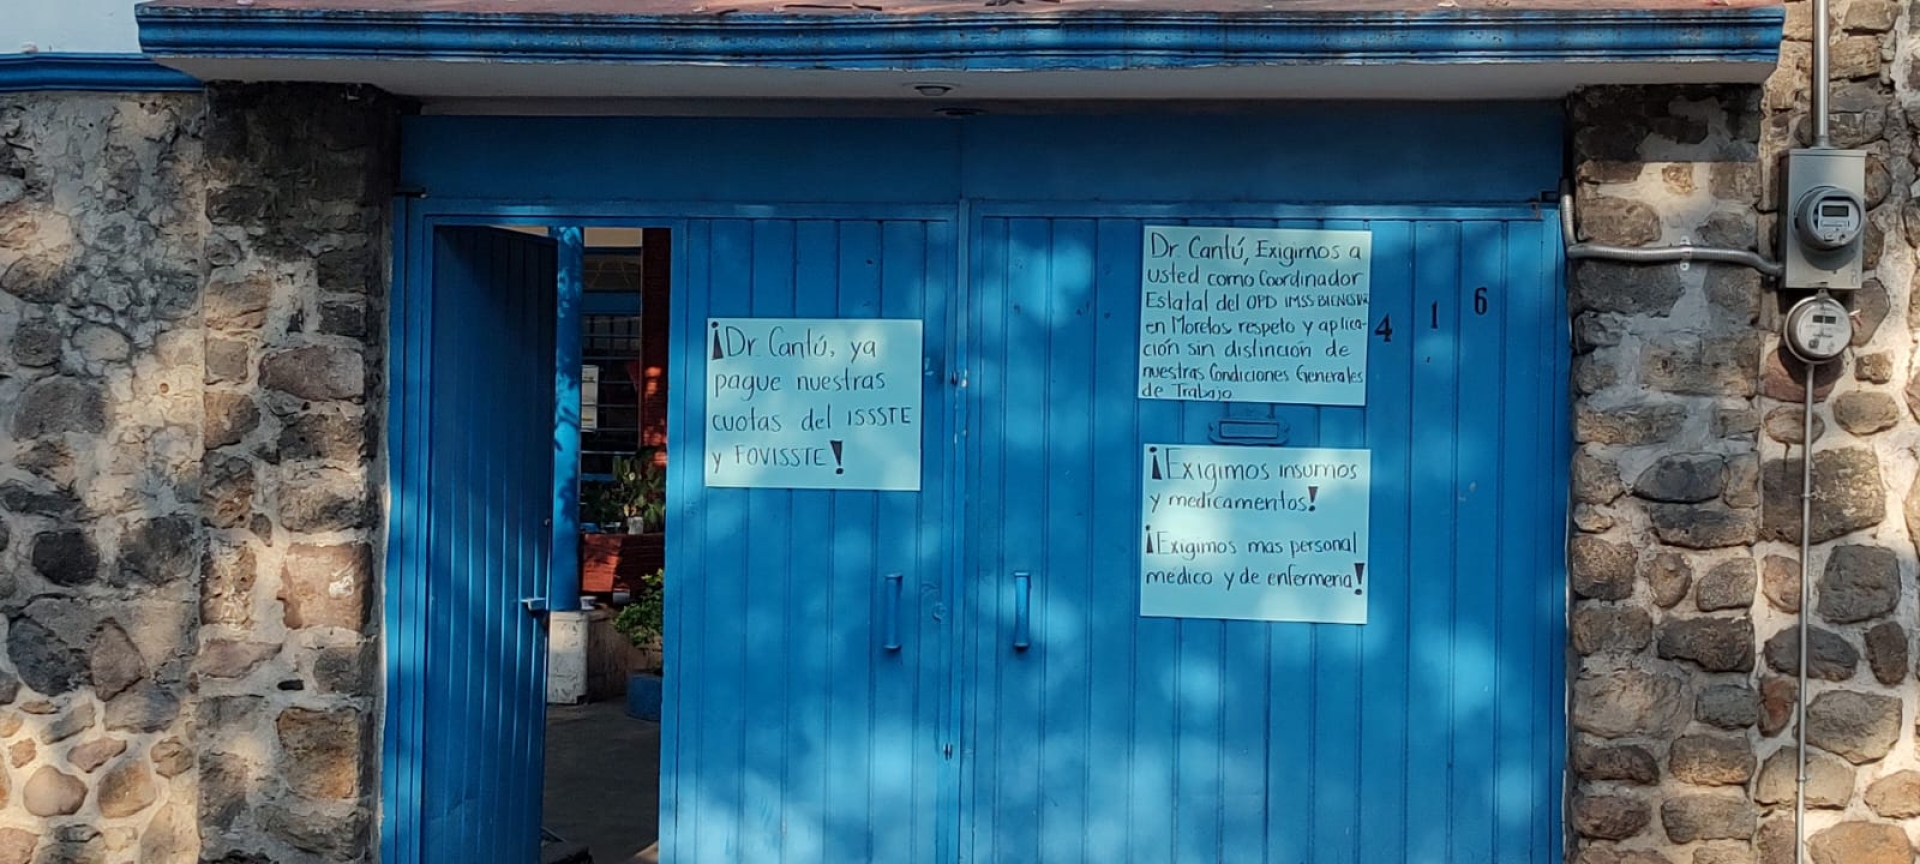 ¡Dr. Cantú, ya
pague nuestras
cuotas del ISSSTE
y FOVISSTE!
Dr. Cantú, Exigimos a
usted como Coordinador
Estatal del OPD IMSS BIENESTAR
en Morelos, respeto y aplica-
ción sin distinción de
nuestras Condiciones Generales
de Trabajo
¡Exigimos insumos
y medicamentos!
¡Exigimos mas personal
médico y de enfermeria!
4 1 6